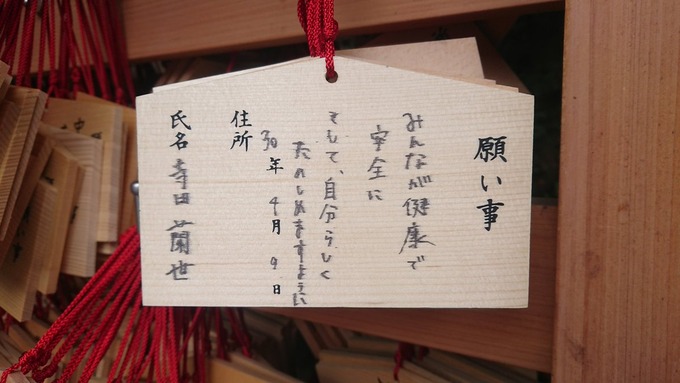 願い事
みんなが健康で
安全に
そして、自分らしく
たのしめますように
30年4月9日
住所
氏名 寺田蘭世